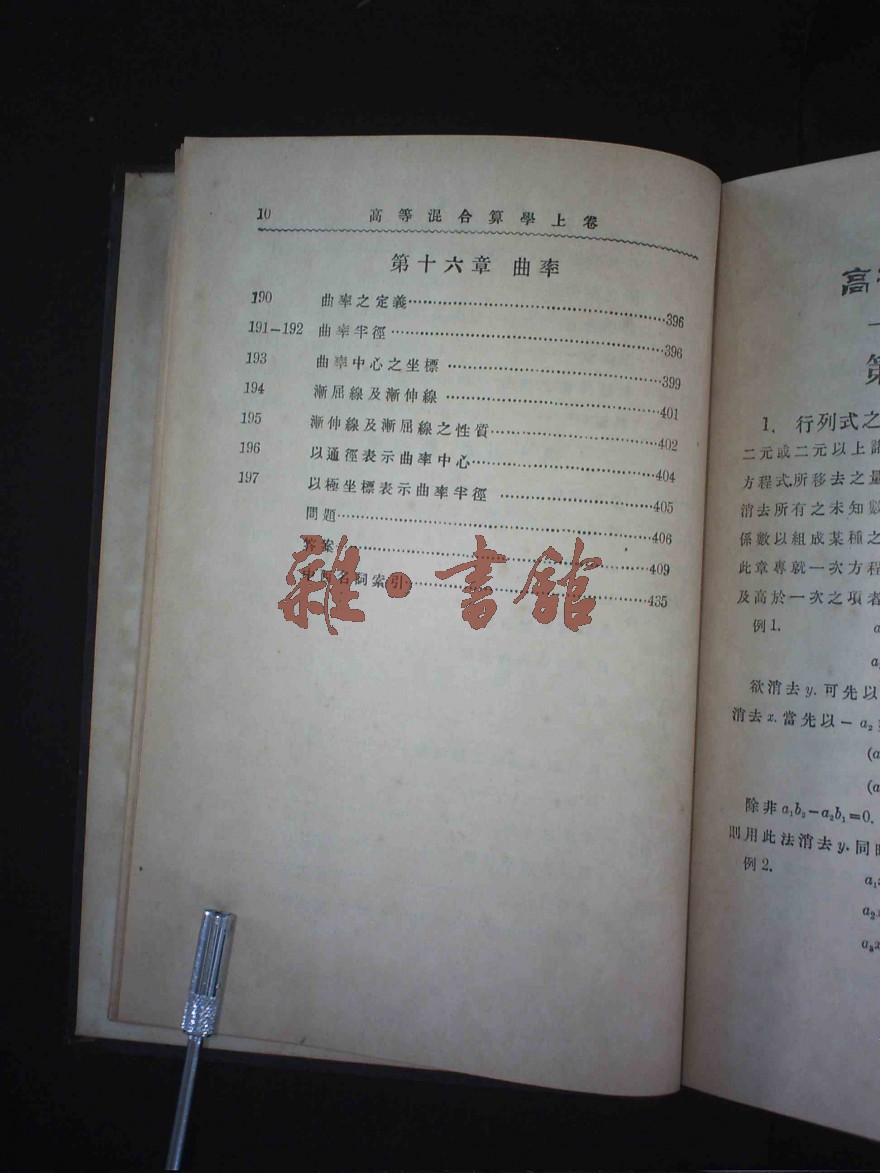 10 高等混合算學上卷
第十六章 曲率
190 曲率之定義……396
191—192 曲率半徑……396
193 曲率中心之坐標……399
194 漸屈線及漸伸線……401
195 漸伸線及漸屈線之性質……402
196 以通徑表示曲率中心……404
197 以極坐標表示曲率半徑……405
問題……406
答案……409
名詞索引……435
雜·書館
高
第
1. 行列式之
二元或二元以上諸
方程式.所移去之量
消去所有之未知數
係數以組成某種之
此章專就一次方程
及高於一次之項者
例1. a
a
欲消去 y. 可先以
消去 x. 當先以 — a₂
(a
(a
除非 a₁b₂—a₂b₁=0.
則用此法消去 y. 同時
例2. a₁x
a₂x
a₃x